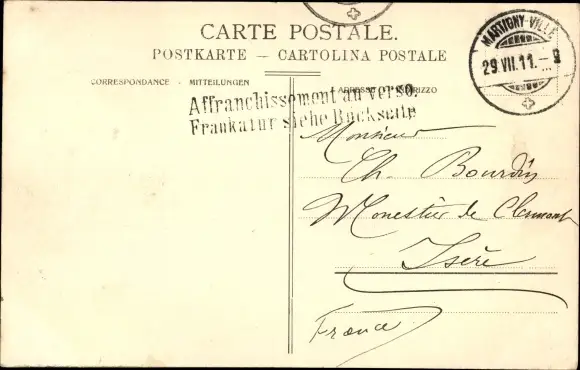 CARTE POSTALE.
POSTKARTE — CARTOLINA POSTALE
CORRESPONDANCE - MITTEILUNGEN
ADRESSE INDIRIZZO
Affranchissement au verso.
Frankatur siehe Rückseite
MARTIGNY-VILLE
29.VII.11.–9
Monsieur
Ch. Bourdin
Monestier de Clermont
Isère
France